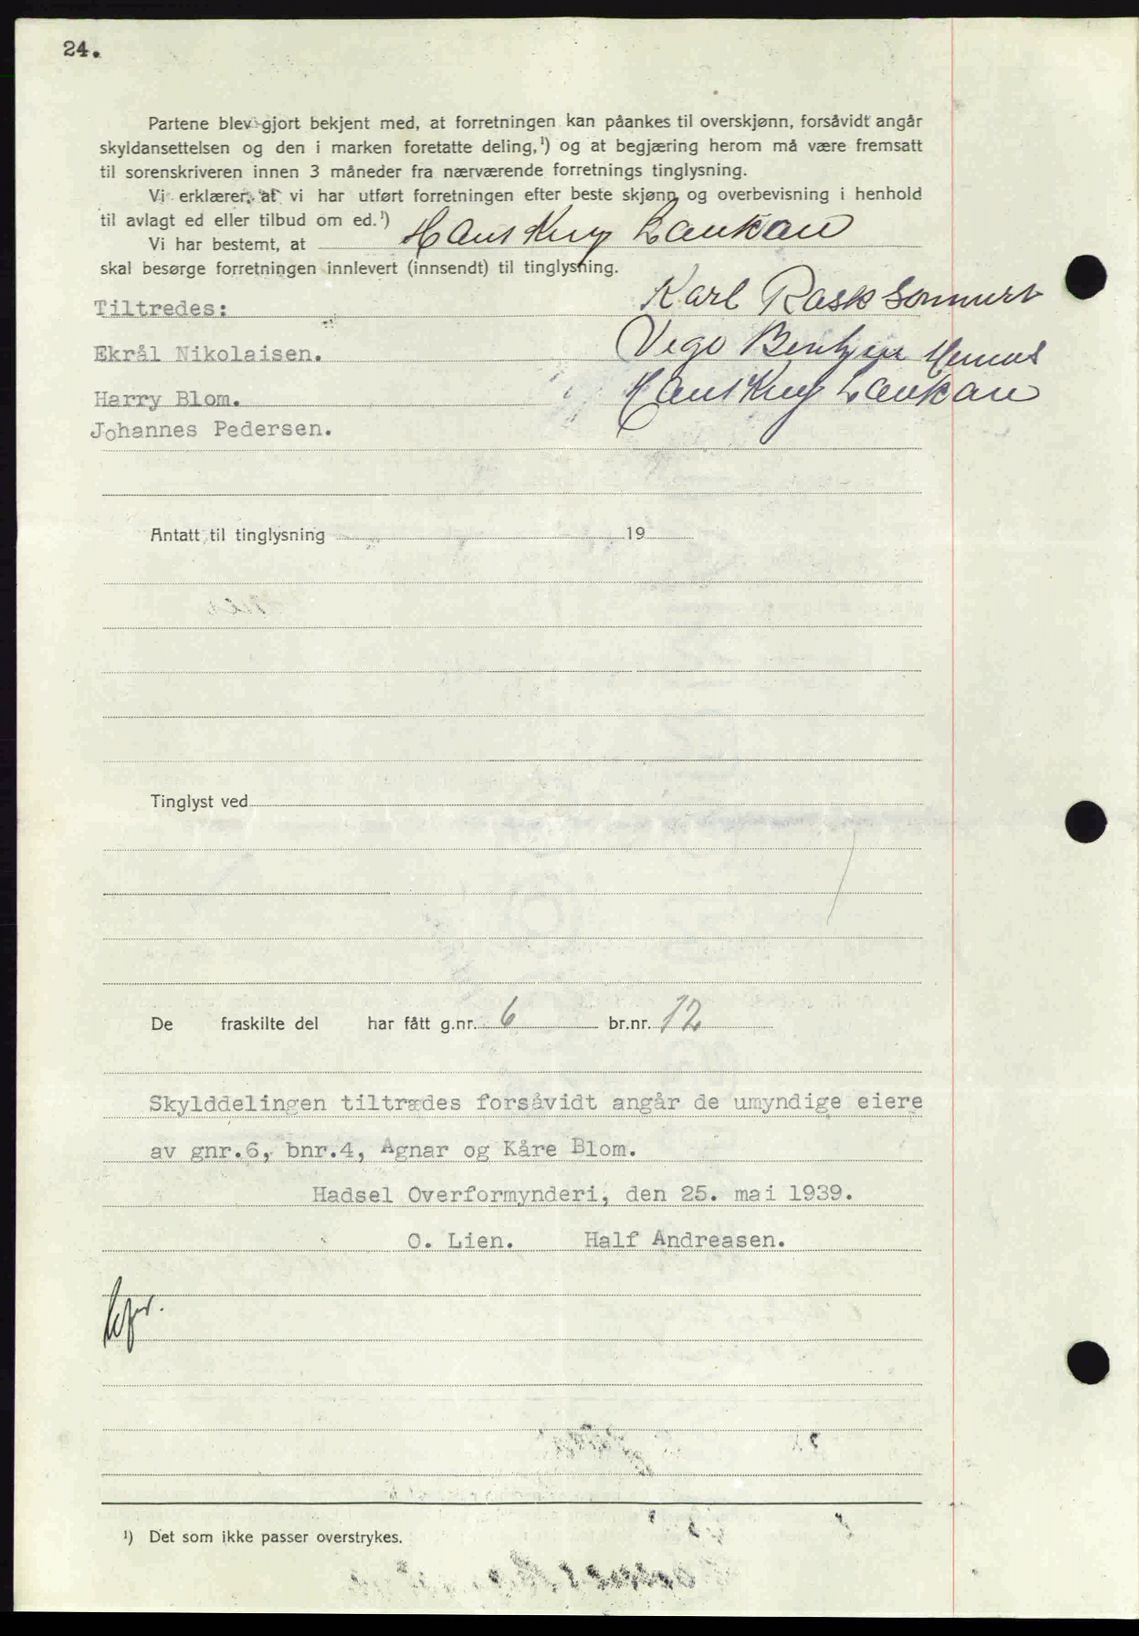 24.
Partene blev gjort bekjent med, at forretningen kan påankes til overskjønn, forsåvidt angår
skyldansettelsen og den i marken foretatte deling,¹) og at begjæring herom må være fremsatt
til sorenskriveren innen 3 måneder fra nærværende forretnings tinglysning.
Vi erklærer, at vi har utført forretningen efter beste skjønn og overbevisning i henhold
til avlagt ed eller tilbud om ed.¹)
Vi har bestemt, at Hans
skal besørge forretningen innlevert (innsendt) til tinglysning.
Tiltredes: Karl Rask
Ekrål Nikolaisen. Vego
Harry Blom. Hans
Johannes Pedersen.
Antatt til tinglysning 19
Tinglyst ved
De fraskilte del har fått g.nr. 6 br.nr. 12
Skylddelingen tiltrædes forsåvidt angår de umyndige eiere
av gnr.6, bnr.4, Agnar og Kåre Blom.
Hadsel Overformynderi, den 25. mai 1939.
O. Lien. Half Andreasen.
¹) Det som ikke passer overstrykes.